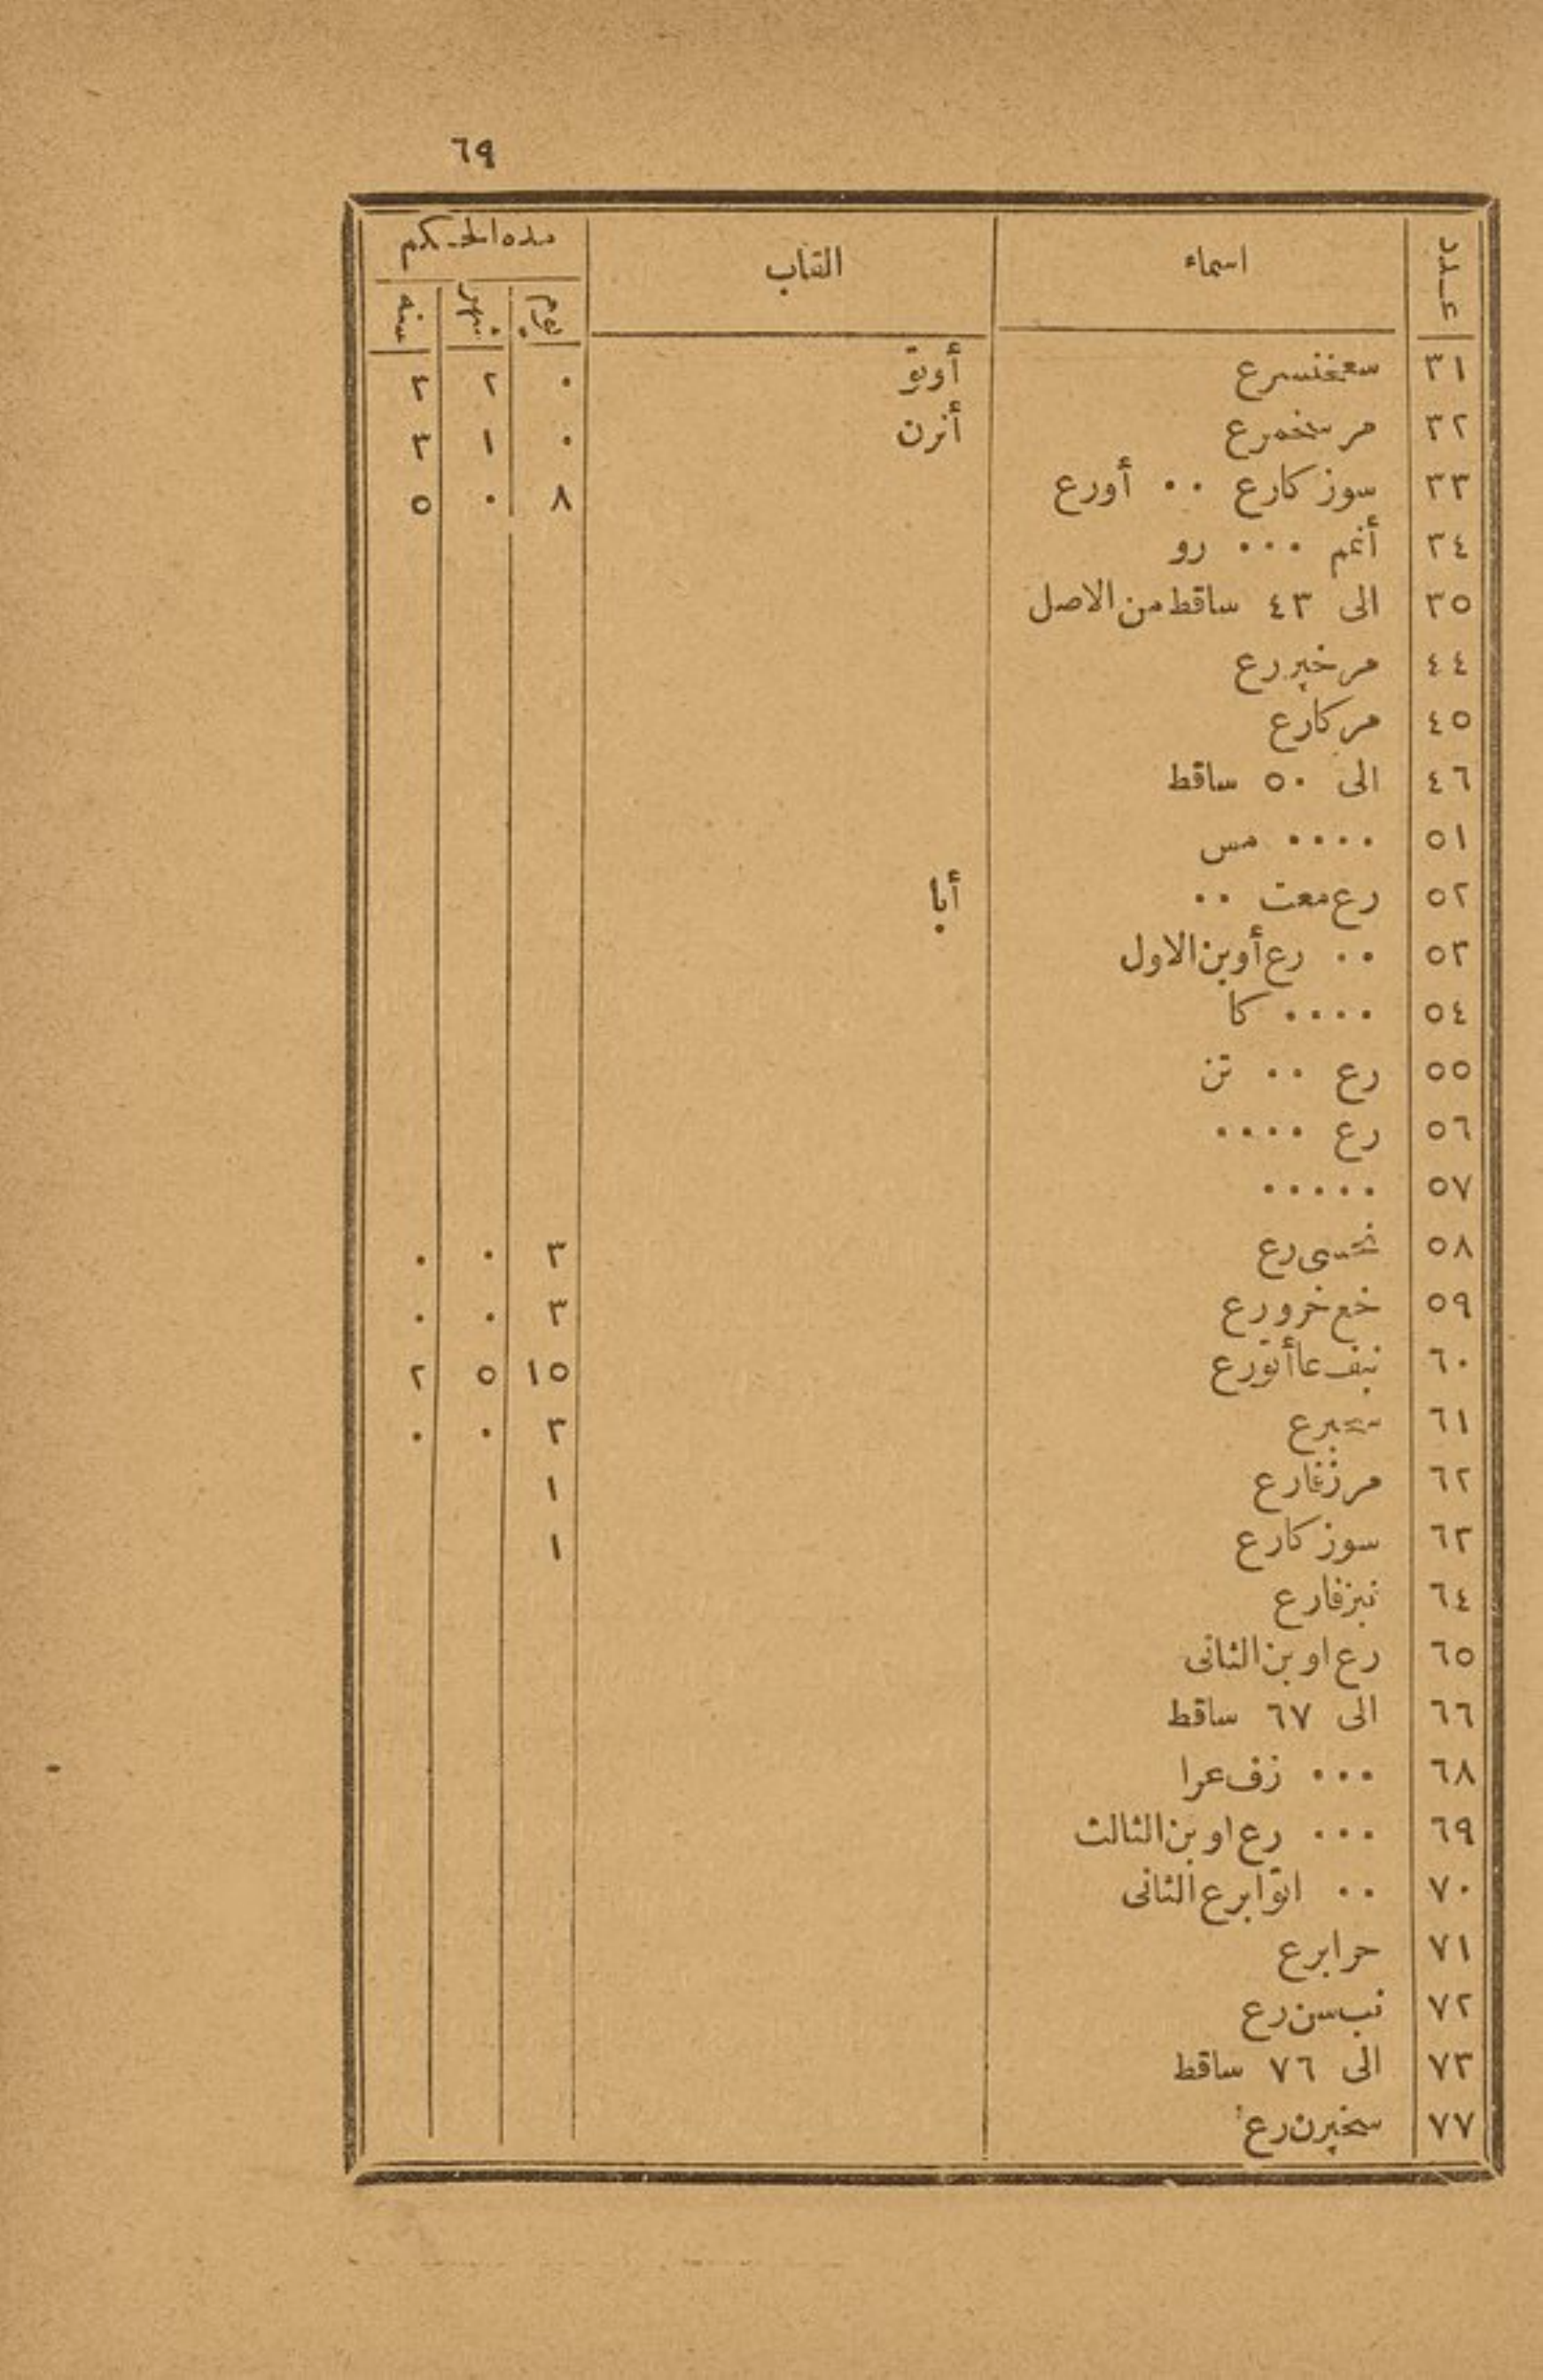 ٦٩
عدد اسماء القاب مدة الحكم
يوم شهر سنه
٣١ سعخنسرع أوتو ٠ ٢ ٣
٣٢ مر سخمرع أنرن ٠ ١ ٣
٣٣ سوزكارع ٠٠ أورع ٨ ٠ ٥
٣٤ أنم ٠٠٠ رو
٣٥ الى ٤٣ ساقط من الاصل
٤٤ مرخبررع
٤٥ مركارع
٤٦ الى ٥٠ ساقط
٥١ ٠٠٠٠ مس
٥٢ رع معت ٠٠ أبا
٥٣ ٠٠ رع أوبن الاول
٥٤ ٠٠٠٠ كا
٥٥ رع ٠٠ تن
٥٦ رع ٠٠٠٠
٥٧ ٠٠٠٠٠
٥٨ نحسى رع ٣ ٠ ٠
٥٩ خع خرورع ٣ ٠ ٠
٦٠ نبف عا أتورع ١٥ ٥ ٢
٦١ سحبرع ٣ ٠ ٠
٦٢ مرزفارع ١
٦٣ سوزكارع ١
٦٤ نبزفارع
٦٥ رع اوبن الثانى
٦٦ الى ٦٧ ساقط
٦٨ ٠٠٠ زف عرا
٦٩ ٠٠٠ رع اوبن الثالث
٧٠ ٠٠ اتوابرع الثانى
٧١ حرابرع
٧٢ نب سن رع
٧٣ الى ٧٦ ساقط
٧٧ سخبرن رع